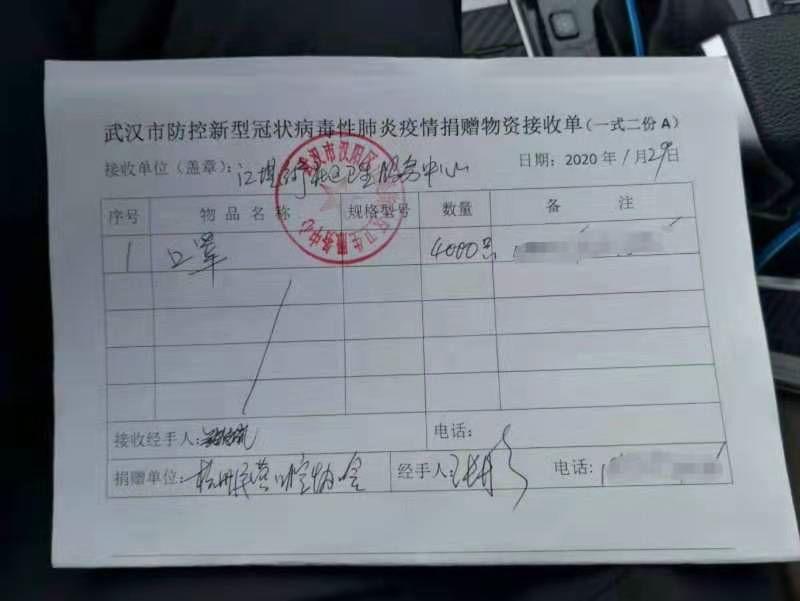 武汉市防控新型冠状病毒性肺炎疫情捐赠物资接收单(一式二份A)
接收单位(盖章): 江堤街社区卫生服务中心 日期: 2020年1月29日
序号 物品名称 规格型号 数量 备 注
1 口罩 4000只
接收经手人: 电话:
捐赠单位: 杭州民营口腔协会 经手人: 电话:
武汉市汉阳区 卫生服务中心